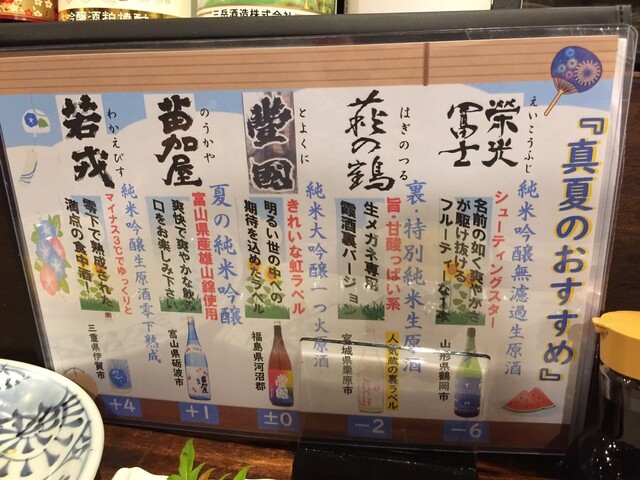 三岳酒造株式会社
『真夏のおすすめ』
えいこうふじ
榮光冨士
純米吟醸無濾過生原酒
シューティングスター
名前の如く爽やかさ
が駆け抜ける
フルーティーな1本
山形県鶴岡市
-6
はぎのつる
萩の鶴
裏・特別純米生原酒
旨・甘酸っぱい系
生メガネ専用
霞酒裏バージョン
人気蔵の裏ラベル
宮城県栗原市
-2
とよくに
豐國
純米大吟醸一つ火原酒
きれいな虹ラベル
明るい世の中への
期待を込めたラベル
福島県河沼郡
±0
のうかや
苗加屋
夏の純米吟醸
富山県産雄山錦使用
爽快で爽やかな飲み
口をお楽しみ下さい
富山県砺波市
+1
わかえびす
若戎
純米吟醸生原酒零下熟成
マイナス3℃でゆっくりと
零下で熟成された
満点の食中酒!
三重県伊賀市
+4